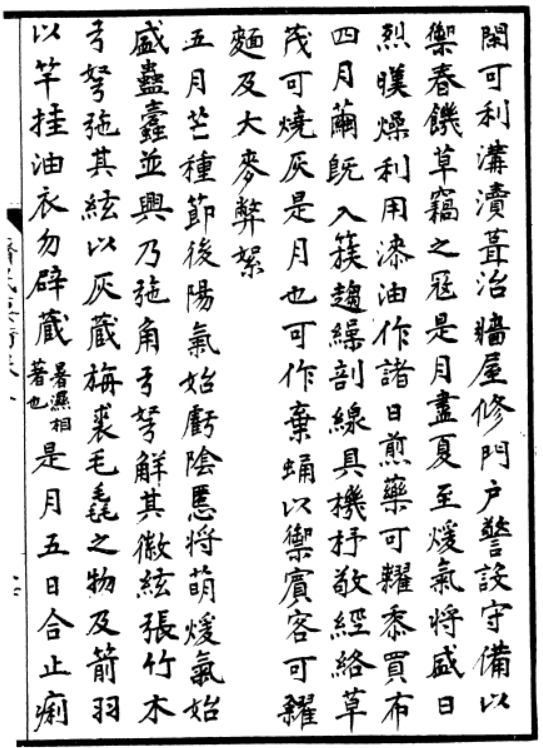 閑可利溝瀆葺治牆屋修門户警設守備以
禦春饑草竊之寇是月盡夏至煖氣將盛日
烈暵燥利用漆油作諸日煎藥可糶黍買布
四月繭既入簇趨繰剖線具機杼敬經絡草
茂可燒灰是月也可作棗蛹以禦賓客可糴
麵及大麥弊絮
五月芒種節後陽氣始虧陰慝將萌煖氣始
盛蠱蠹並興乃弛角弓弩解其徽絃張竹木
弓弩弛其絃以灰藏旃裘毛毳之物及箭羽
以竿挂油衣勿辟藏
暑濕相
著也
是月五日合止痢